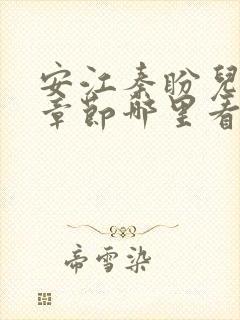 安江秦盼兒
章節哪里看
帝雪染